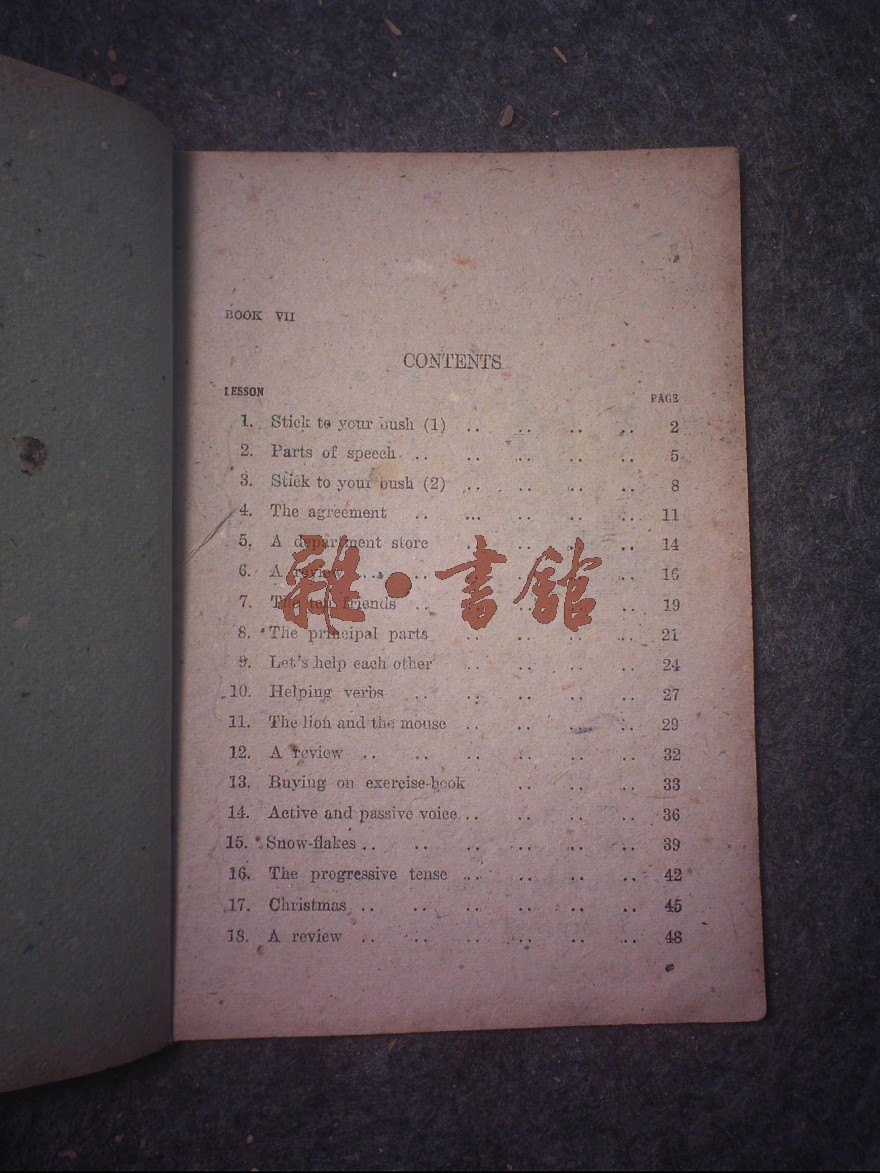 BOOK VII
CONTENTS
LESSON PAGE
1. Stick to your bush (1) .. .. .. .. 2
2. Parts of speech .. .. .. .. .. 5
3. Stick to your bush (2) .. .. .. .. 8
4. The agreement .. ... .. .. .. 11
5. A department store .. .. .. .. 14
6. A review .. .. .. .. .. .. 16
7. The ten friends .. .. .. .. .. 19
8. The principal parts .. .. .. .. 21
9. Let's help each other .. .. .. .. 24
10. Helping verbs .. .. .. .. .. 27
11. The lion and the mouse .. .. .. .. 29
12. A review .. .. .. .. .. .. 32
13. Buying on exercise-book .. .. .. 33
14. Active and passive voice .. .. .. .. 36
15. Snow-flakes .. .. .. .. .. .. 39
16. The progressive tense .. .. .. .. 42
17. Christmas .. .. .. .. .. .. 45
18. A review .. .. .. .. .. .. 48
雜·書館